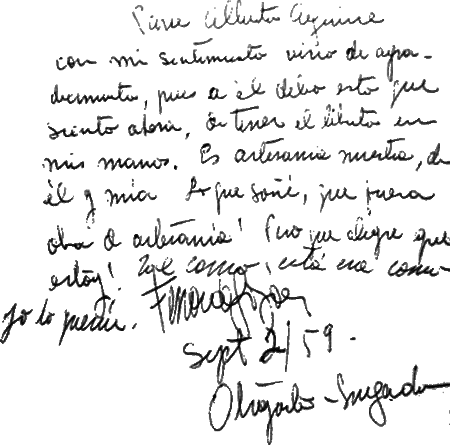 Para Alberto Aguirre
con mi sentimiento vivo de agra-
decimiento, pues a él debo esto que
siento ahora, de tener el librito en
mis manos. Es artesanía nuestra, de
él y mía. Lo que soñé, que fuera
obra de artesanía! Pero que alegre que
estoy! Tal como, está era como
yo lo pedí. Fernando González
Sept 2/59.
Otraparte - Envigado